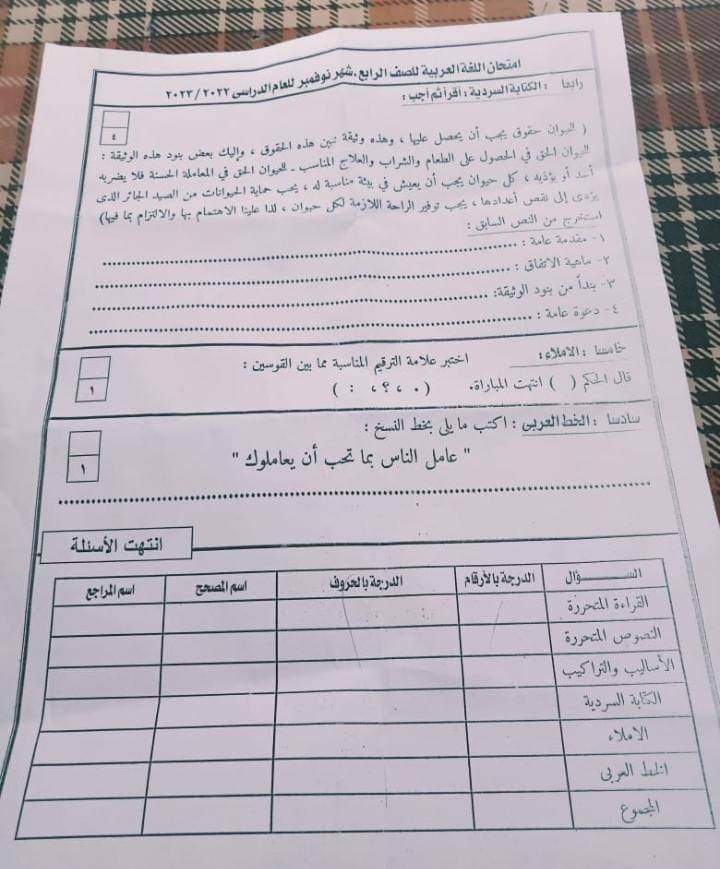 امتحان اللغة العربية للصف الرابع، شهر نوفمبر للعام الدراسى ٢٠٢٢ / ٢٠٢٣
رابعا : الكتابة السردية : أقرأ ثم أجب :
٤
( للحيوان حقوق يجب أن يحصل عليها ، وهذه وثيقة تبين هذه الحقوق ، وإليك بعض بنود هذه الوثيقة :
للحيوان الحق في الحصول على الطعام والشراب والعلاج المناسب - للحيوان الحق في المعاملة الحسنة فلا يضربه
أحد أو يؤذيه ، كل حيوان يجب أن يعيش في بيئة مناسبة له ، يجب حماية الحيوانات من الصيد الجائر الذى
يؤدى إلى نقص أعدادها ، يجب توفير الراحة اللازمة لكل حيوان ، لذا علينا الاهتمام بها والالتزام بما فيها)
استخرج من النص السابق :
١- مقدمة عامة : ........................
٢- ماهية الاتفاق : ........................
٣- بنداً من بنود الوثيقة: ........................
٤- دعوة عامة : ........................
خامسا : الاملاء : اختبر علامة الترقيم المناسبة مما بين القوسين :
قال الحكم ( ) انتهت المباراة. ( . ، ؟ ، : )
١
سادسا : الخط العربى : اكتب ما يلى بخط النسخ :
" عامل الناس بما تحب أن يعاملوك "
١
........................
انتهت الأسئلة
الســـــؤال الدرجة بالأرقام الدرجة بالحروف اسم المصحح اسم المراجع
القراءة المتحررة
النصوص المتحررة
الأساليب والتراكيب
الكتابة السردية
الاملاء
الخط العربى
المجموع